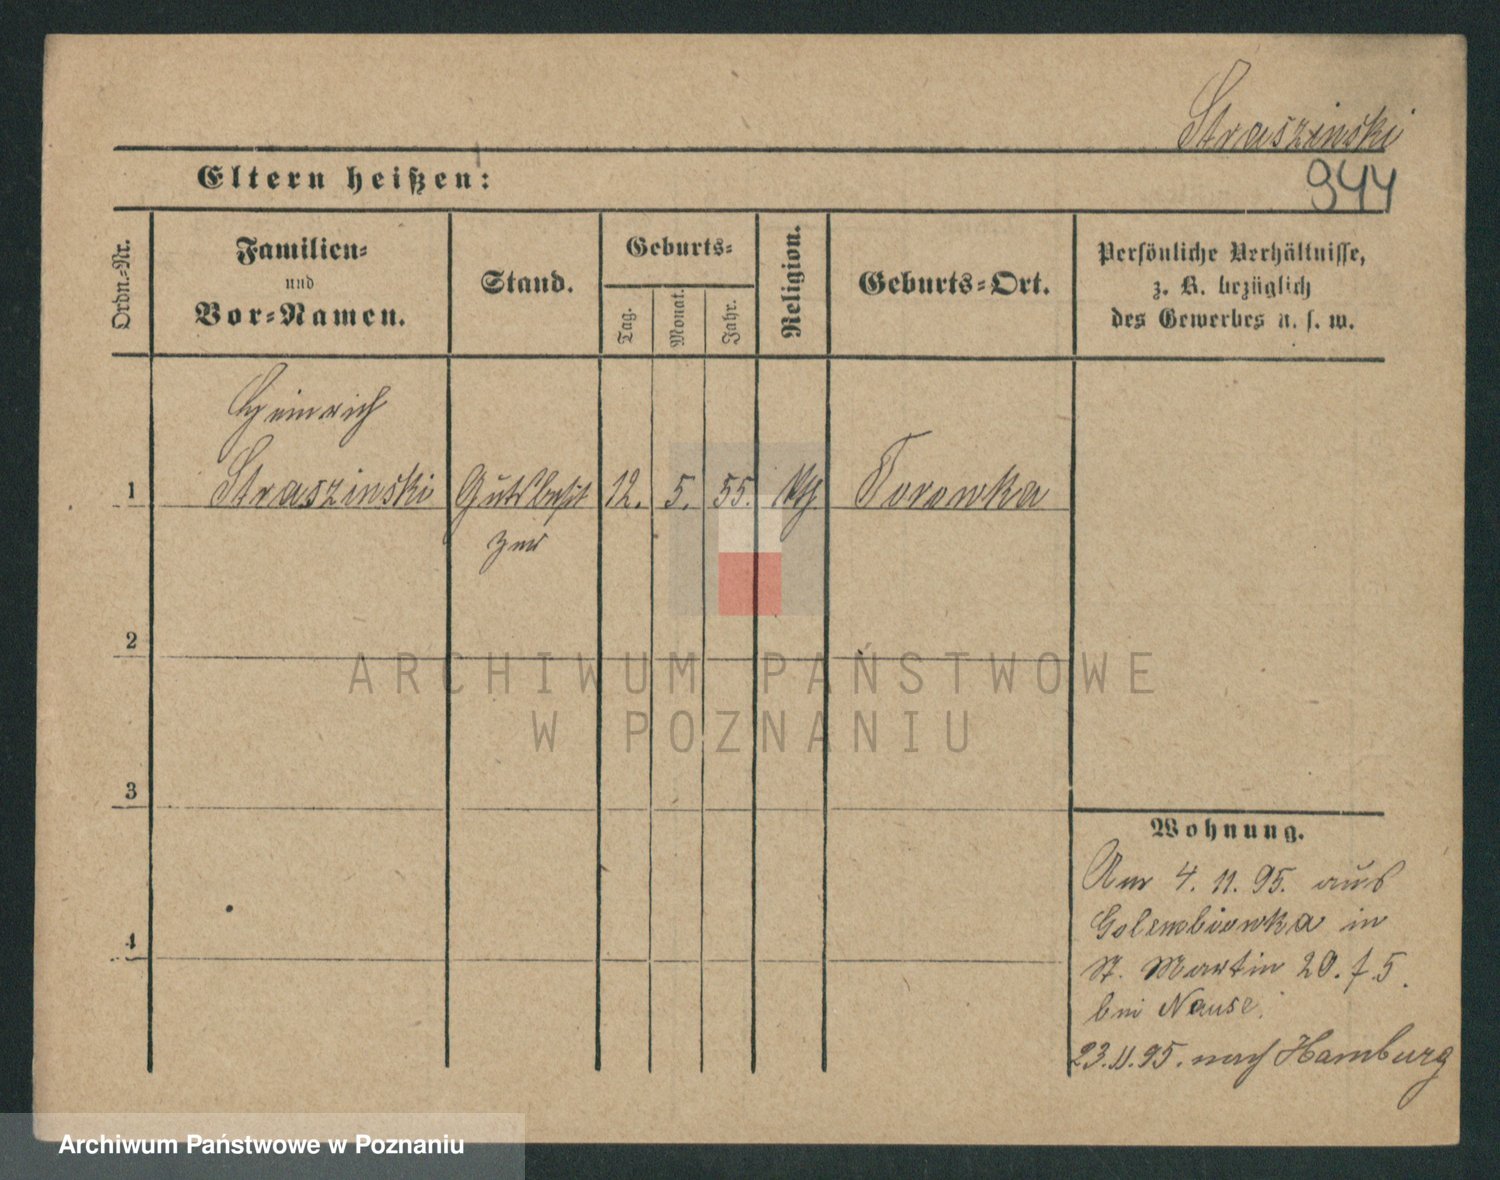 Straszinski
Eltern heißen:
944
Ordn.=Nr.
Familien=
und
Vor=Namen.
Stand.
Geburts=
Tag.
Monat.
Jahr.
Religion.
Geburts=Ort.
Persönliche Verhältnisse,
z. B. bezüglich
des Gewerbes u. s. w.
Heinrich
1 Straszinski Gutsbesit 12. 5. 55. Torowka
zer
2
ARCHIWUM PAŃSTWOWE
W POZNANIU
3
Wohnung.
Am 4. 11. 95. aus
Golembiewka in
4
St. Martin 20. f. 5.
bei Nause.
23.11.95. nach Hamburg
Archiwum Państwowe w Poznaniu